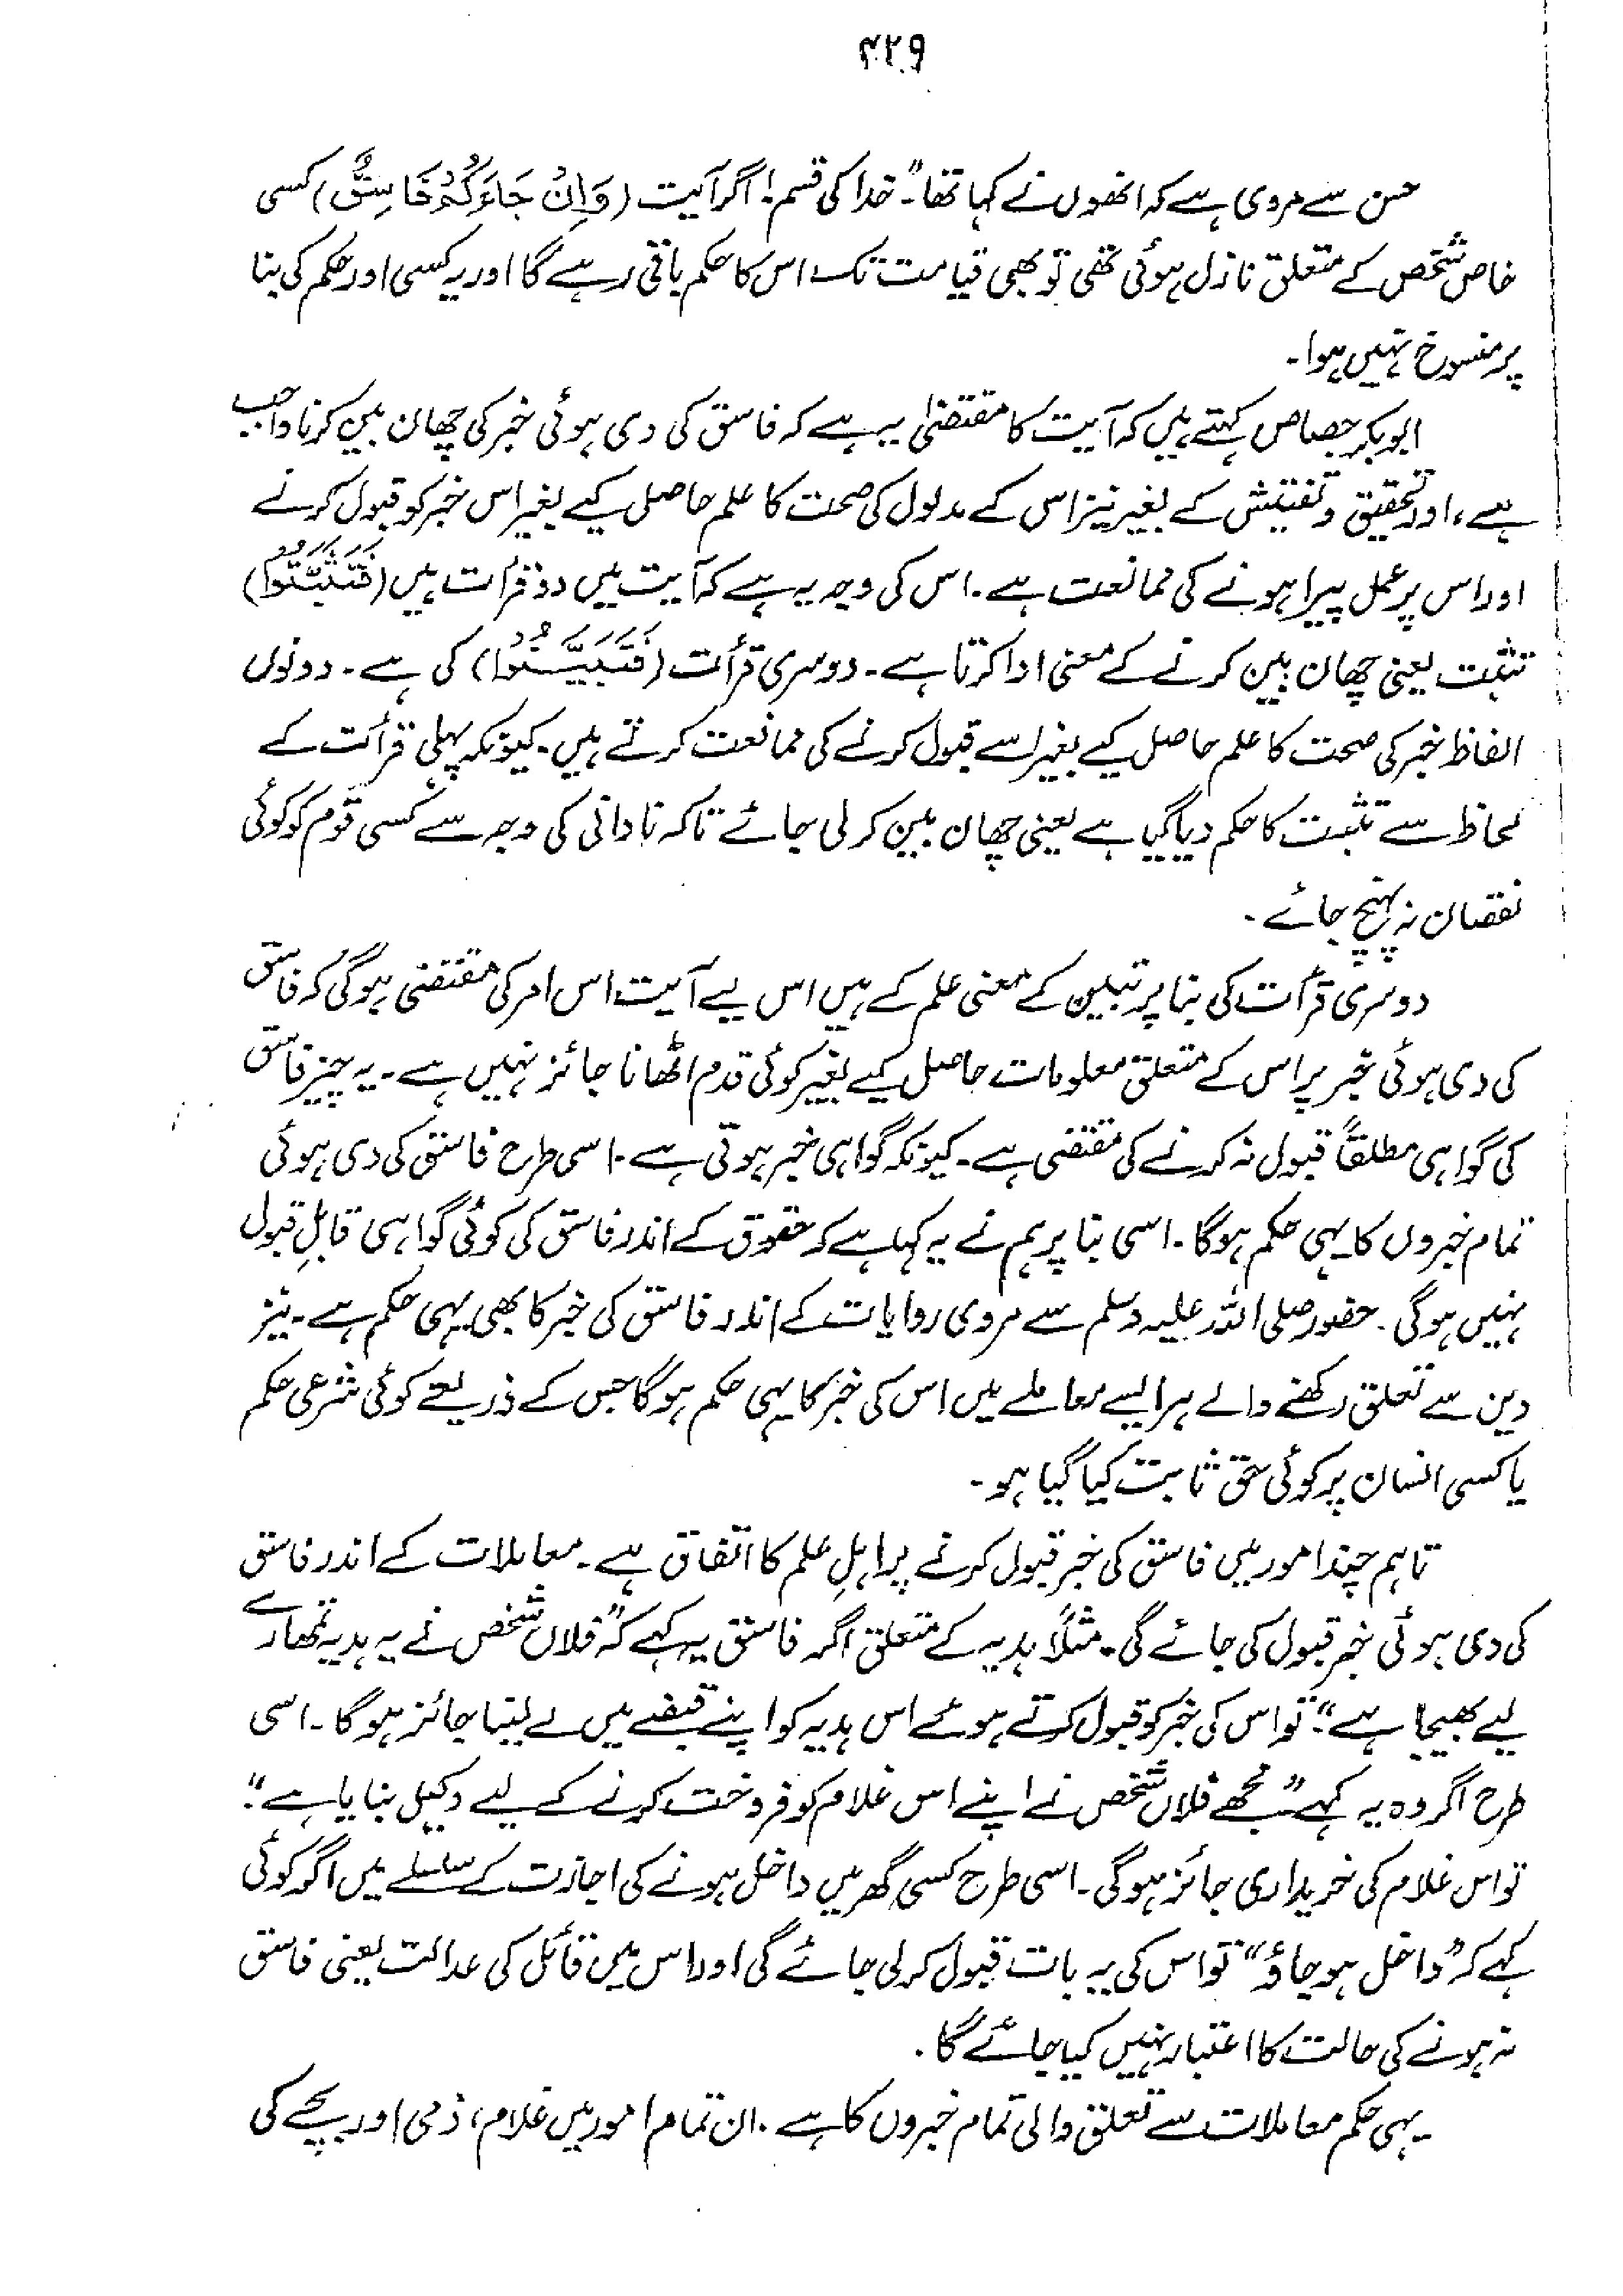 ۴۲۹
حسن سے مروی ہے کہ انھوں نے کہا تھا۔ "خدا کی قسم! اگر آیت (وَاِنْ جَاءَکُمْ فَاسِقٌ) کسی
خاص شخص کے متعلق نازل ہوئی تھی تو بھی قیامت تک اس کا حکم باقی رہے گا اور یہ کسی اور حکم کی بنا
پر منسوخ نہیں ہوا۔
ابوبکر جصاص کہتے ہیں کہ آیت کا مقتضیٰ یہ ہے کہ فاسق کی دی ہوئی خبر کی چھان بین کرنا واجب
ہے، اور تحقیق و تفتیش کے بغیر نیز اس کے مدلول کی صحت کا علم حاصل کیے بغیر اس خبر کو قبول کرنے
اور اس پر عمل پیرا ہونے کی ممانعت ہے۔ اس کی وجہ یہ ہے کہ آیت میں دو قرأت ہیں (فَتَثَبَّتُوْا)
تثبت یعنی چھان بین کرنے کے معنی ادا کرتا ہے۔ دوسری قرأت (فَتَبَیَّنُوْا) کی ہے۔ دونوں
الفاظ خبر کی صحت کا علم حاصل کیے بغیر اسے قبول کرنے کی ممانعت کرتے ہیں۔ کیونکہ پہلی قرأت کے
لحاظ سے تثبت کا حکم دیا گیا ہے یعنی چھان بین کر لی جائے تاکہ نادانی کی وجہ سے کسی قوم کو کوئی
نقصان نہ پہنچ جائے۔
دوسری قرأت کی بنا پر تبین کے معنی علم کے ہیں اس لیے آیت اس امر کی مقتضی ہوگی کہ فاسق
کی دی ہوئی خبر پر اس کے متعلق معلومات حاصل کیے بغیر کوئی قدم اٹھانا جائز نہیں ہے۔ یہ چیز فاسق
کی گواہی مطلقاً قبول نہ کرنے کی مقتضی ہے۔ کیونکہ گواہی خبر ہوتی ہے۔ اسی طرح فاسق کی دی ہوئی
تمام خبروں کا یہی حکم ہوگا۔ اسی بنا پر ہم نے یہ کہا ہے کہ حقوق کے اندر فاسق کی کوئی گواہی قابلِ قبول
نہیں ہوگی۔ حضور صلی اللہ علیہ وسلم سے مروی روایات کے اندر فاسق کی خبر کا بھی یہی حکم ہے۔ نیز
دین سے تعلق رکھنے والے ہر ایسے معاملے میں اس کی خبر کا یہی حکم ہوگا جس کے ذریعے کوئی شرعی حکم
یا کسی انسان پر کوئی حق ثابت کیا گیا ہو۔
تاہم چند امور میں فاسق کی خبر قبول کرنے پر اہلِ علم کا اتفاق ہے۔ معاملات کے اندر فاسق
کی دی ہوئی خبر قبول کی جائے گی۔ مثلاً ہدیہ کے متعلق اگر فاسق یہ کہے کہ "فلاں شخص نے یہ ہدیہ تمھارے
لیے بھیجا ہے"۔ تو اس کی خبر کو قبول کرتے ہوئے اس ہدیہ کو اپنے قبضے میں لے لینا جائز ہوگا۔ اسی
طرح اگر وہ یہ کہے "مجھے فلاں شخص نے اپنے اس غلام کو فروخت کرنے کے لیے وکیل بنایا ہے"۔
تو اس غلام کی خریداری جائز ہوگی۔ اسی طرح کسی گھر میں داخل ہونے کی اجازت کے سلسلے میں اگر کوئی
کہے کہ "داخل ہو جاؤ" تو اس کی یہ بات قبول کر لی جائے گی اور اس میں قائل کی عدالت یعنی فاسق
نہ ہونے کی حالت کا اعتبار نہیں کیا جائے گا۔
یہی حکم معاملات سے تعلق والی تمام خبروں کا ہے۔ ان تمام امور میں غلام، ذمی اور بچے کی